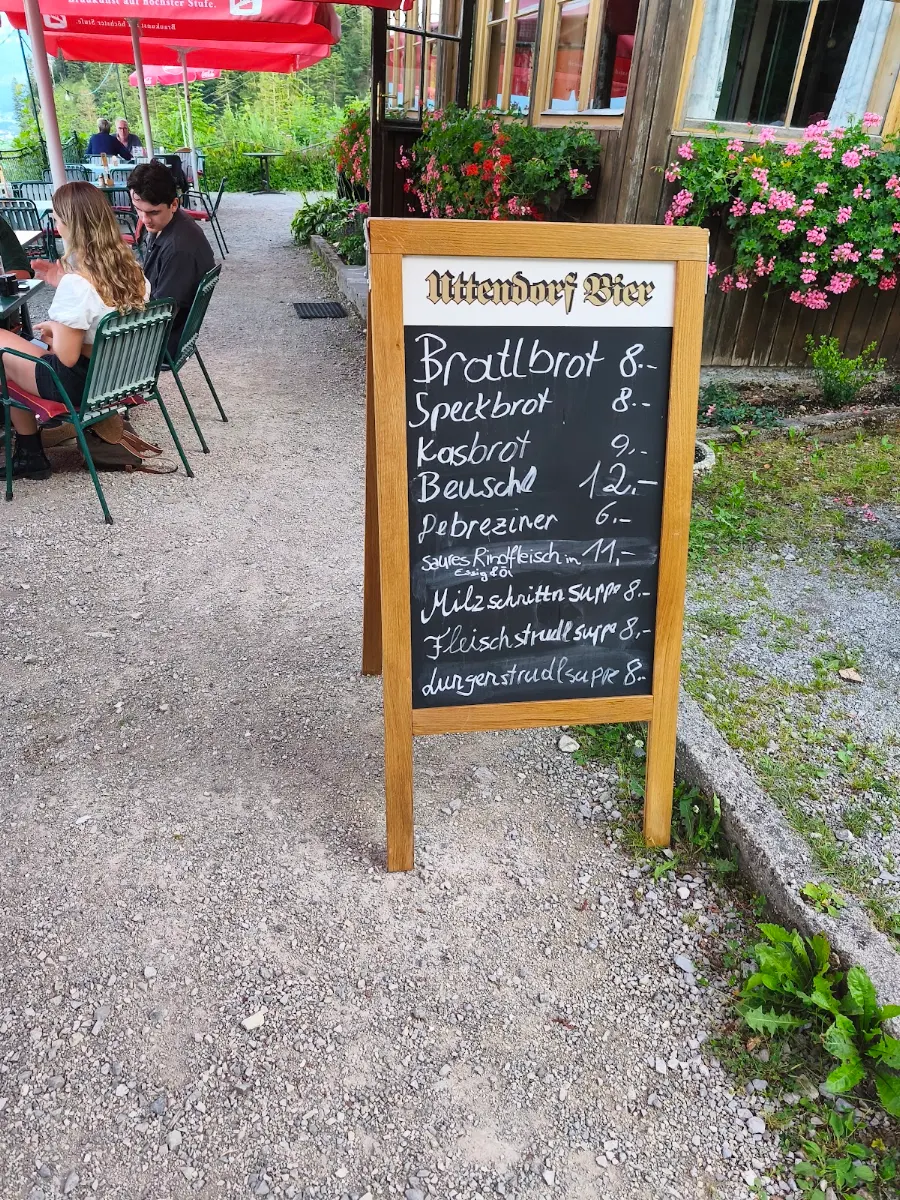 Braukunst auf höchster Stufe.
Braukunst auf höchster Stufe.
Uttendorf Bier
Bratlbrot 8.-
Speckbrot 8.-
Kasbrot 9,-
Beuschl 12,-
Debreziner 6,-
saures Rindfleisch in 11,-
Essig & Öl
Milzschnittn suppe 8.-
Fleischstrudlsuppe 8,-
Lungenstrudlsuppe 8.-